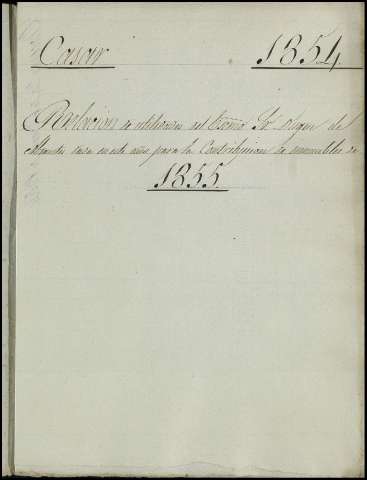 Casar 1854
Relacion de utilidades del Escmo Sr Duque de
Abrantes dada en este año para la Contribucion de inmuebles de
1855.